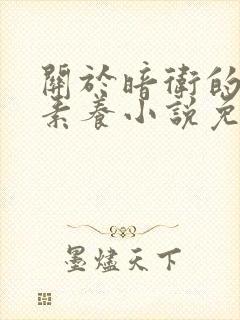 關於暗衛的
素養小說免
墨燼天下